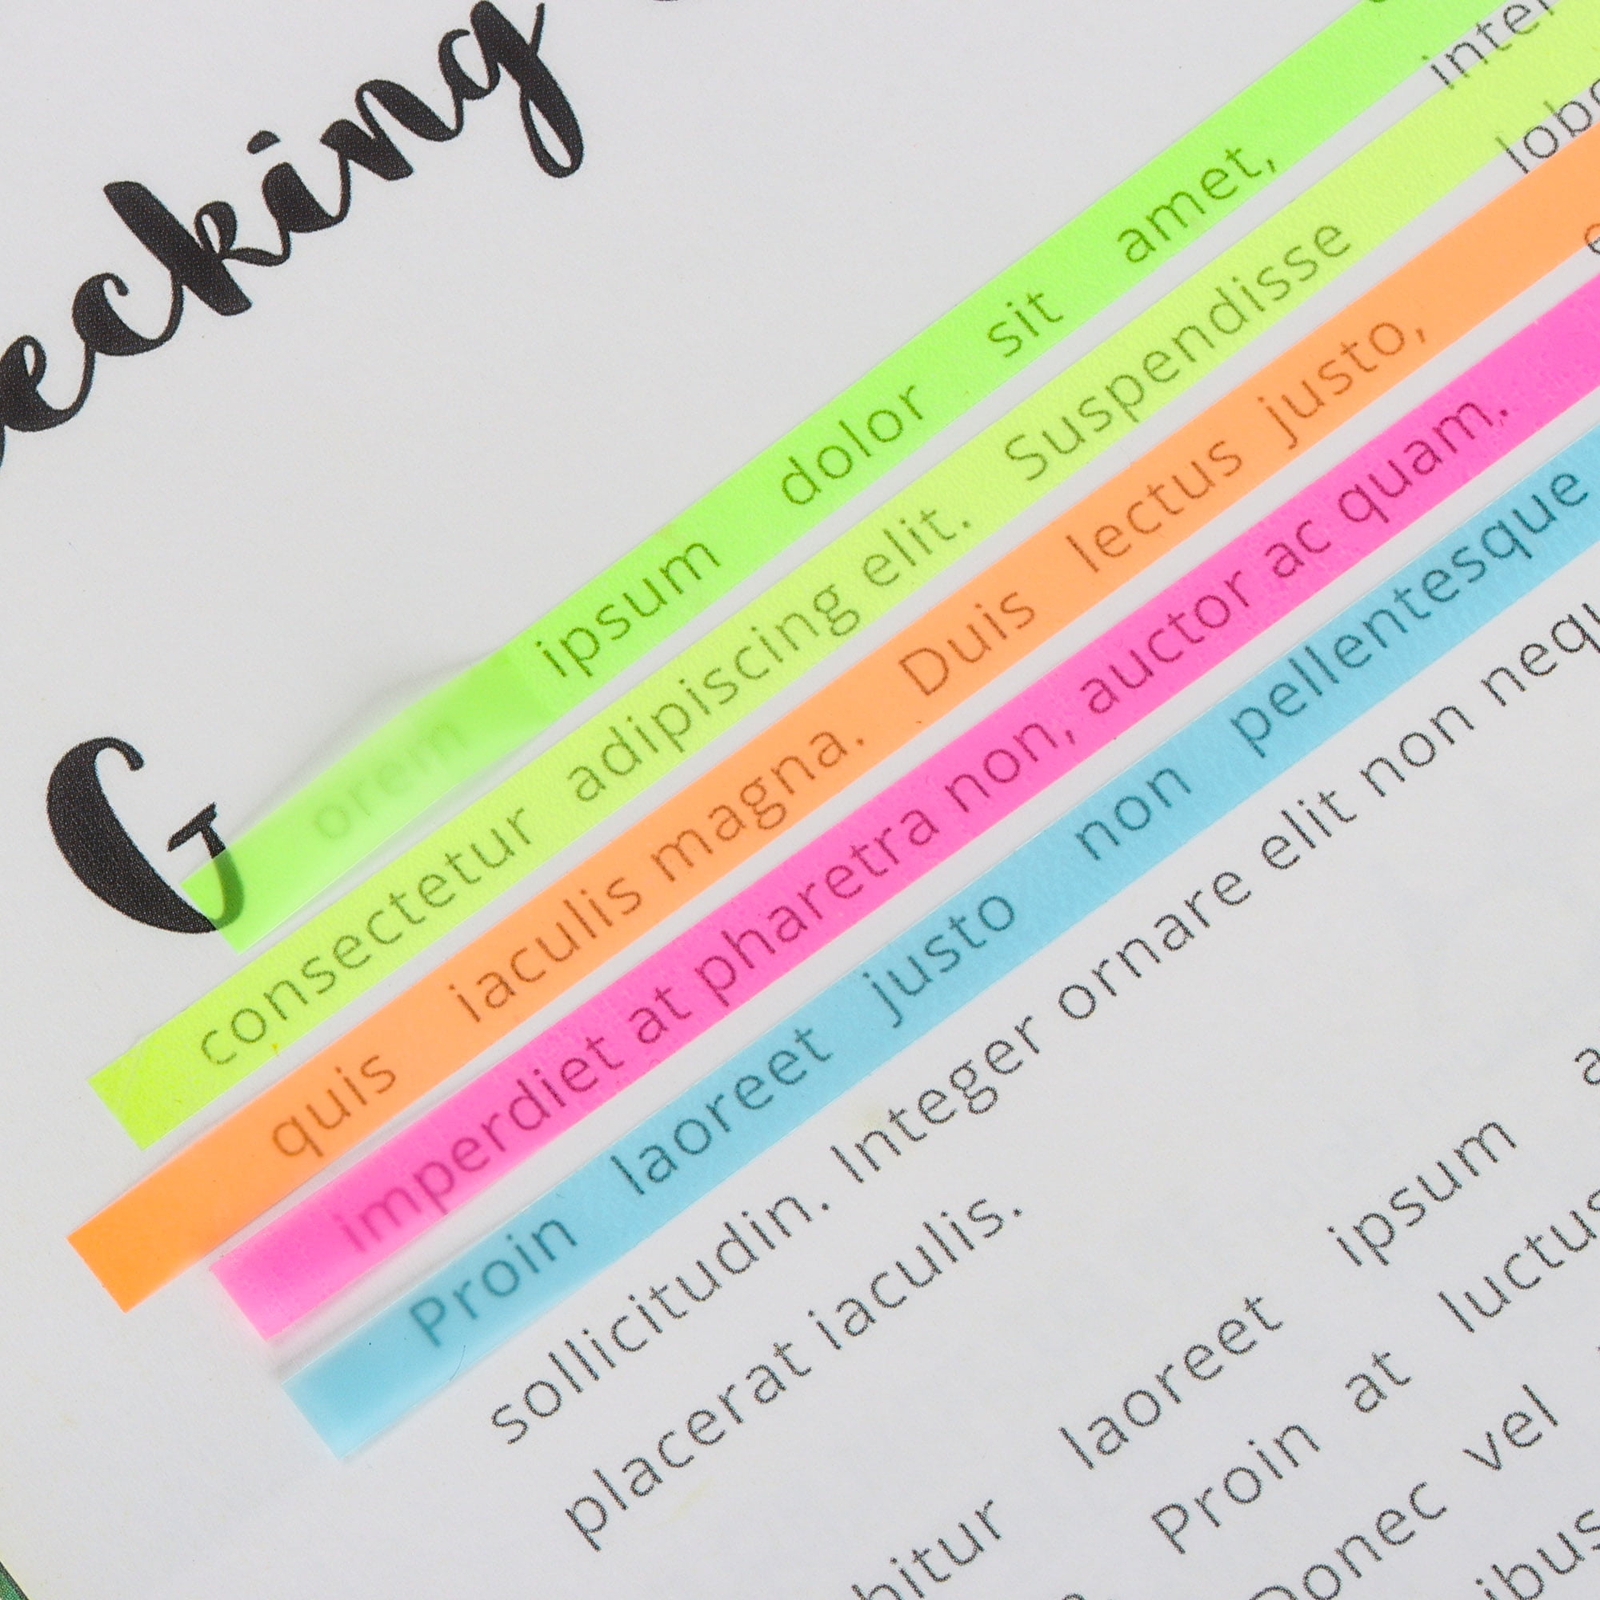 ecking
G
orem ipsum dolor sit amet,
consectetur adipiscing elit. Suspendisse
quis iaculis magna. Duis lectus justo,
imperdiet at pharetra non, auctor ac quam.
Proin laoreet justo non pellentesque
sollicitudin. Integer ornare elit non nequ
placerat iaculis.
inter
lobo
bitur laoreet ipsum a
Proin at luctus
Donec vel
ibus